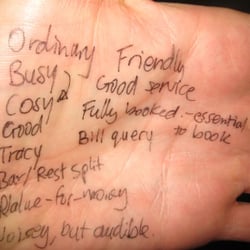 Ordinary
Busy
Cosy
Good
Tracy
Bar/Rest split
Value-for-money
Noisy, but audible.
Friendly
Good service
Fully booked - essential
to book
Bill query